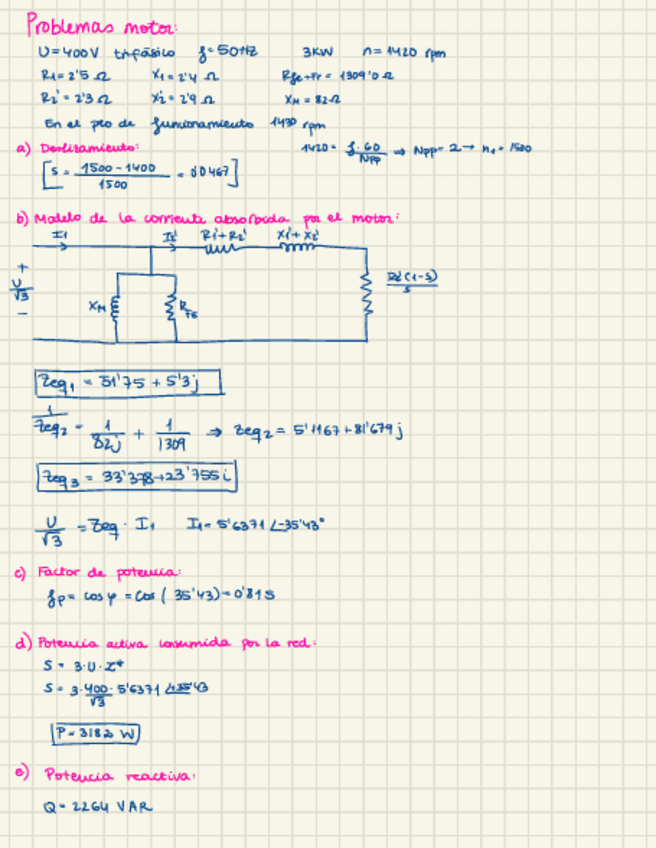 Problemas motor:
U=400V trifásico f=50Hz 3KW n=1420 rpm
R1=2'5 Ω X1=2'4 Ω Rfe+Fr = 1309'0 Ω
R2' = 2'3 Ω X2' = 2'9 Ω XM = 82 Ω
En el pto de funcionamiento 1430 rpm
a) Deslizamiento: 1420 = f·60/Npp ⇒ Npp= 2 → n1 = 1500
[S = 1500 - 1400 / 1500 = 0'0467]
b) Modelo de la corriente absorbida por el motor:
I1 I2' R1'+R2' X1'+X2'
+ U/√3 - XM RFe R2'(1-s)/s
Zeq1 = 51'75 + 5'3j
1/Zeq2 = 1/82j + 1/1309 ⇒ Zeq2 = 5'1167+81'679j
Zeq3 = 33'378+23'755i
U/√3 = Zeq · I1 I1 = 5'6371 ∠-35'43°
c) Factor de potencia:
fp = cos φ = Cos ( 35'43) = 0'815
d) Potencia activa consumida por la red:
S = 3·U·I*
S = 3·400/√3 · 5'6371 ∠+35'43
P = 3182 W
e) Potencia reactiva:
Q = 2264 VAR